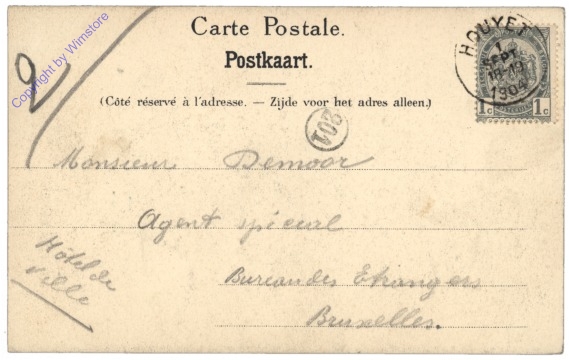 Carte Postale.
Postkaart.
(Côté réservé à l'adresse. — Zijde voor het adres alleen.)
HOUYET
1
SEPT
18-19
1904
1c 1c
2
Copyright by Wimstore
108
Monsieur Demoor
Agent spécial
Hôtel de
Ville
Bureau des Etrangers
Bruxelles.